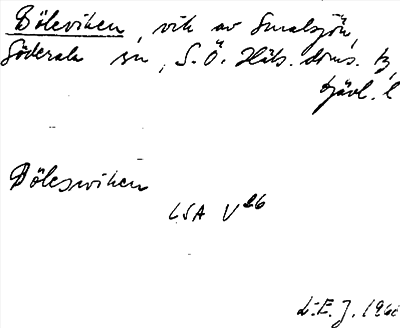 Böleviken, vik av Smalsjön,
Söderala sn, S. Ö. Häls. doms. tg,
Gävl. l
Bölesviken
LSA V26
L.E.J. 196